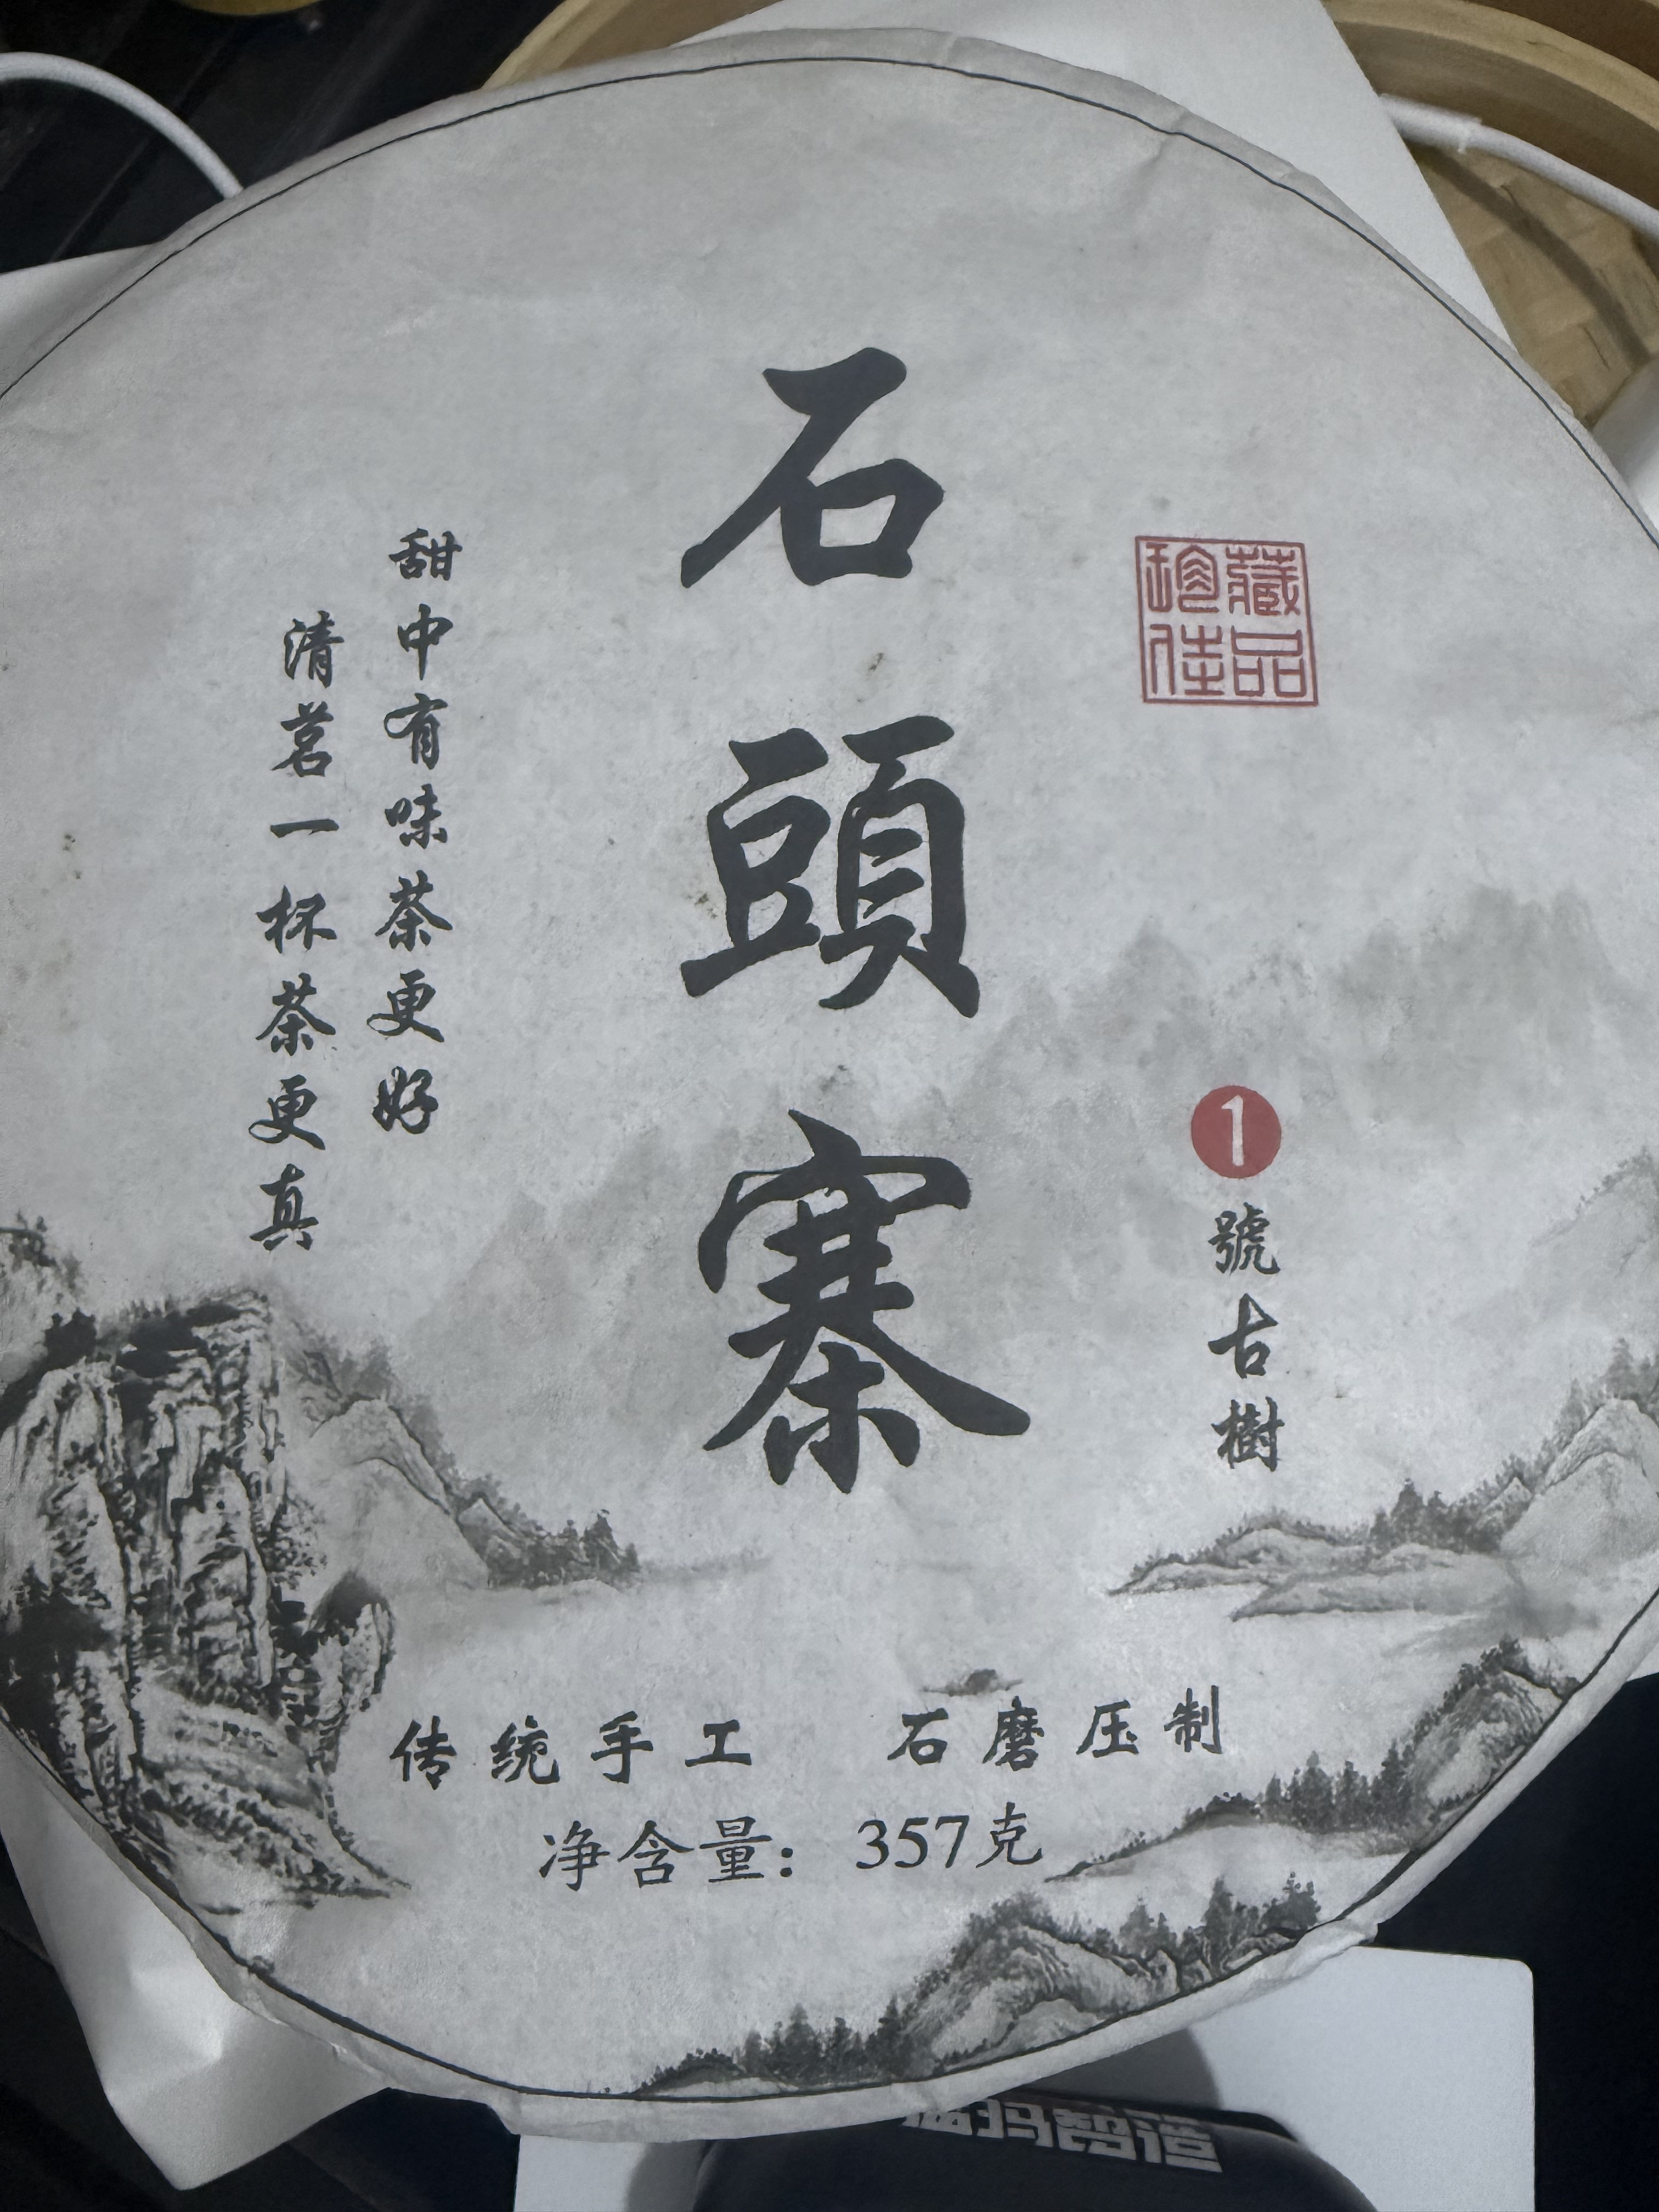 石頭寨
珍藏
佳品
1號古樹
甜中有味茶更好
清茗一杯茶更真
传统手工 石磨压制
净含量：357克
智造